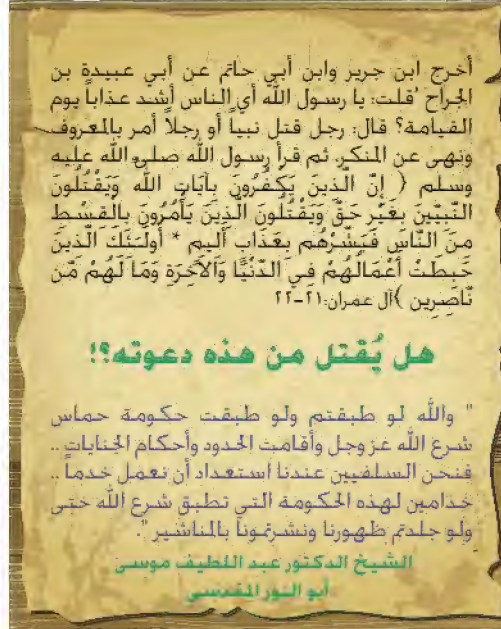 أخرج ابن جرير وابن أبي حاتم عن أبي عبيدة بن
الجراح "قلت: يا رسول الله أي الناس أشد عذاباً يوم
القيامة؟ قال: رجل قتل نبياً أو رجلاً أمر بالمعروف
ونهى عن المنكر. ثم قرأ رسول الله صلى الله عليه
وسلم { إِنَّ الَّذِينَ يَكْفُرُونَ بِآيَاتِ اللَّهِ وَيَقْتُلُونَ
النَّبِيِّينَ بِغَيْرِ حَقٍّ وَيَقْتُلُونَ الَّذِينَ يَأْمُرُونَ بِالْقِسْطِ
مِنَ النَّاسِ فَبَشِّرْهُم بِعَذَابٍ أَلِيمٍ * أُولَئِكَ الَّذِينَ
حَبِطَتْ أَعْمَالُهُمْ فِي الدُّنْيَا وَالْآخِرَةِ وَمَا لَهُمْ مِّن
نَّاصِرِين }آل عمران:٢١-٢٢
هل يُقتل من هذه دعوته؟!
" والله لو طبقتم ولو طبقت حكومة حماس
شرع الله عز وجل وأقامت الحدود وأحكام الجنايات ..
فنحن السلفيين عندنا استعداد أن نعمل خدماً ..
خدامين لهذه الحكومة التي تطبق شرع الله حتى
ولو جلدتم ظهورنا ونشرتمونا بالمناشير ".
الشيخ الدكتور عبد اللطيف موسى
أبو النور المقدسي